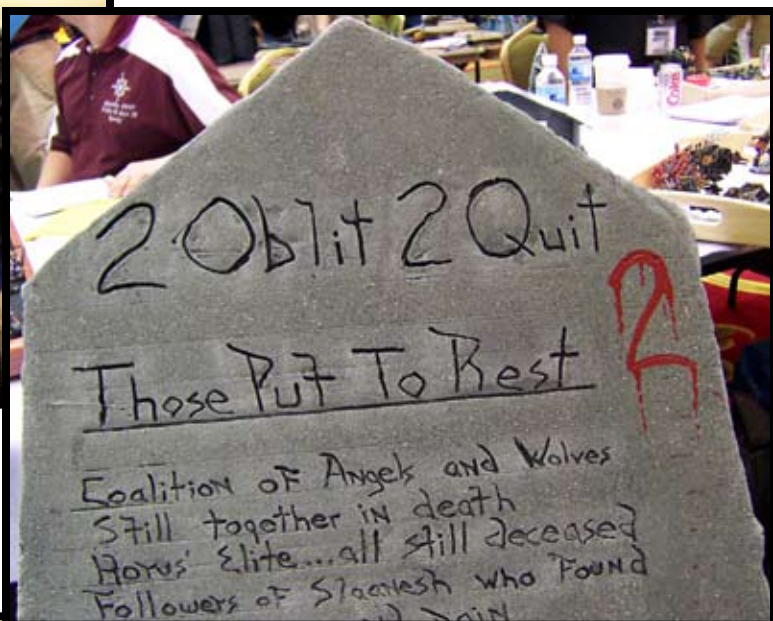 2 Oblit 2 Quit
2
Those Put To Rest
Coalition of Angels and Wolves
Still together in death
Horus' Elite...all still deceased
Followers of Slaanesh who Found
Pain
Coke